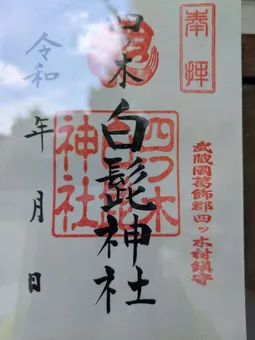 奉拝
武蔵國葛飾郡四ッ木村鎮守
四ツ木
白髭
神社
四ツ木白髭神社
令和
年月日